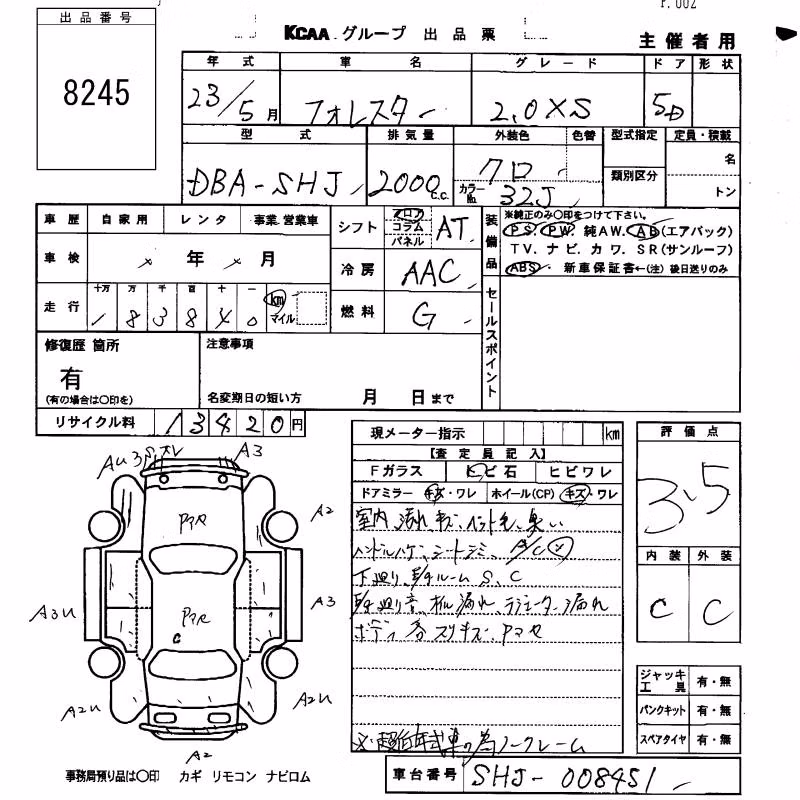 P.002
出品番号
8245
KCAA グループ 出品票
主催者用
年式 車名 グレード ドア 形状
23/5月 フォレスター 2.0XS 5D
型式 排気量 外装色 色替 型式指定 定員・積載
DBA-SHJ 2000c.c. クロ カラーNo. 32J 類別区分 名
トン
車歴 自家用 レンタ 事業 営業車
車検 × 年 × 月
走行 十万 万 千 百 十 一
1 8 3 8 4 0 km マイル
シフト フロア コラム パネル AT
冷房 AAC
燃料 G
装備品
※純正のみ〇印をつけて下さい。
PS. PW. 純AW. AB(エアバック)
TV. ナビ. カワ. SR(サンルーフ)
ABS. 新車保証書←(注) 後日送りのみ
セールスポイント
修復歴 箇所
有
(有の場合は〇印を)
注意事項
名変期日の短い方 月 日まで
リサイクル料 13420円
現メーター指示 km
【査定員記入】
Fガラス トビ石 ヒビワレ
ドアミラー キズ・ワレ ホイール(CP) キズ・ワレ
室内、汚れ、キズ、ペット毛、臭い
ハンドルハゲ、シートシミ、A/C
下廻り、E/gルーム S、C
E/g廻り音、オイル漏れ、ラジエーター漏れ
ボディ各スリキズ、アマセ
※超低年式車の為ノークレーム
評価点
3.5
内装 外装
C C
ジャッキ 工具 有・無
パンクキット 有・無
スペアタイヤ 有・無
車台番号 SHJ-008451
AU3
A3
A2
アマセ
A3U
アマセ
C
A3
A2U
A2U
A2
事務局預り品は〇印 カギ リモコン ナビロム